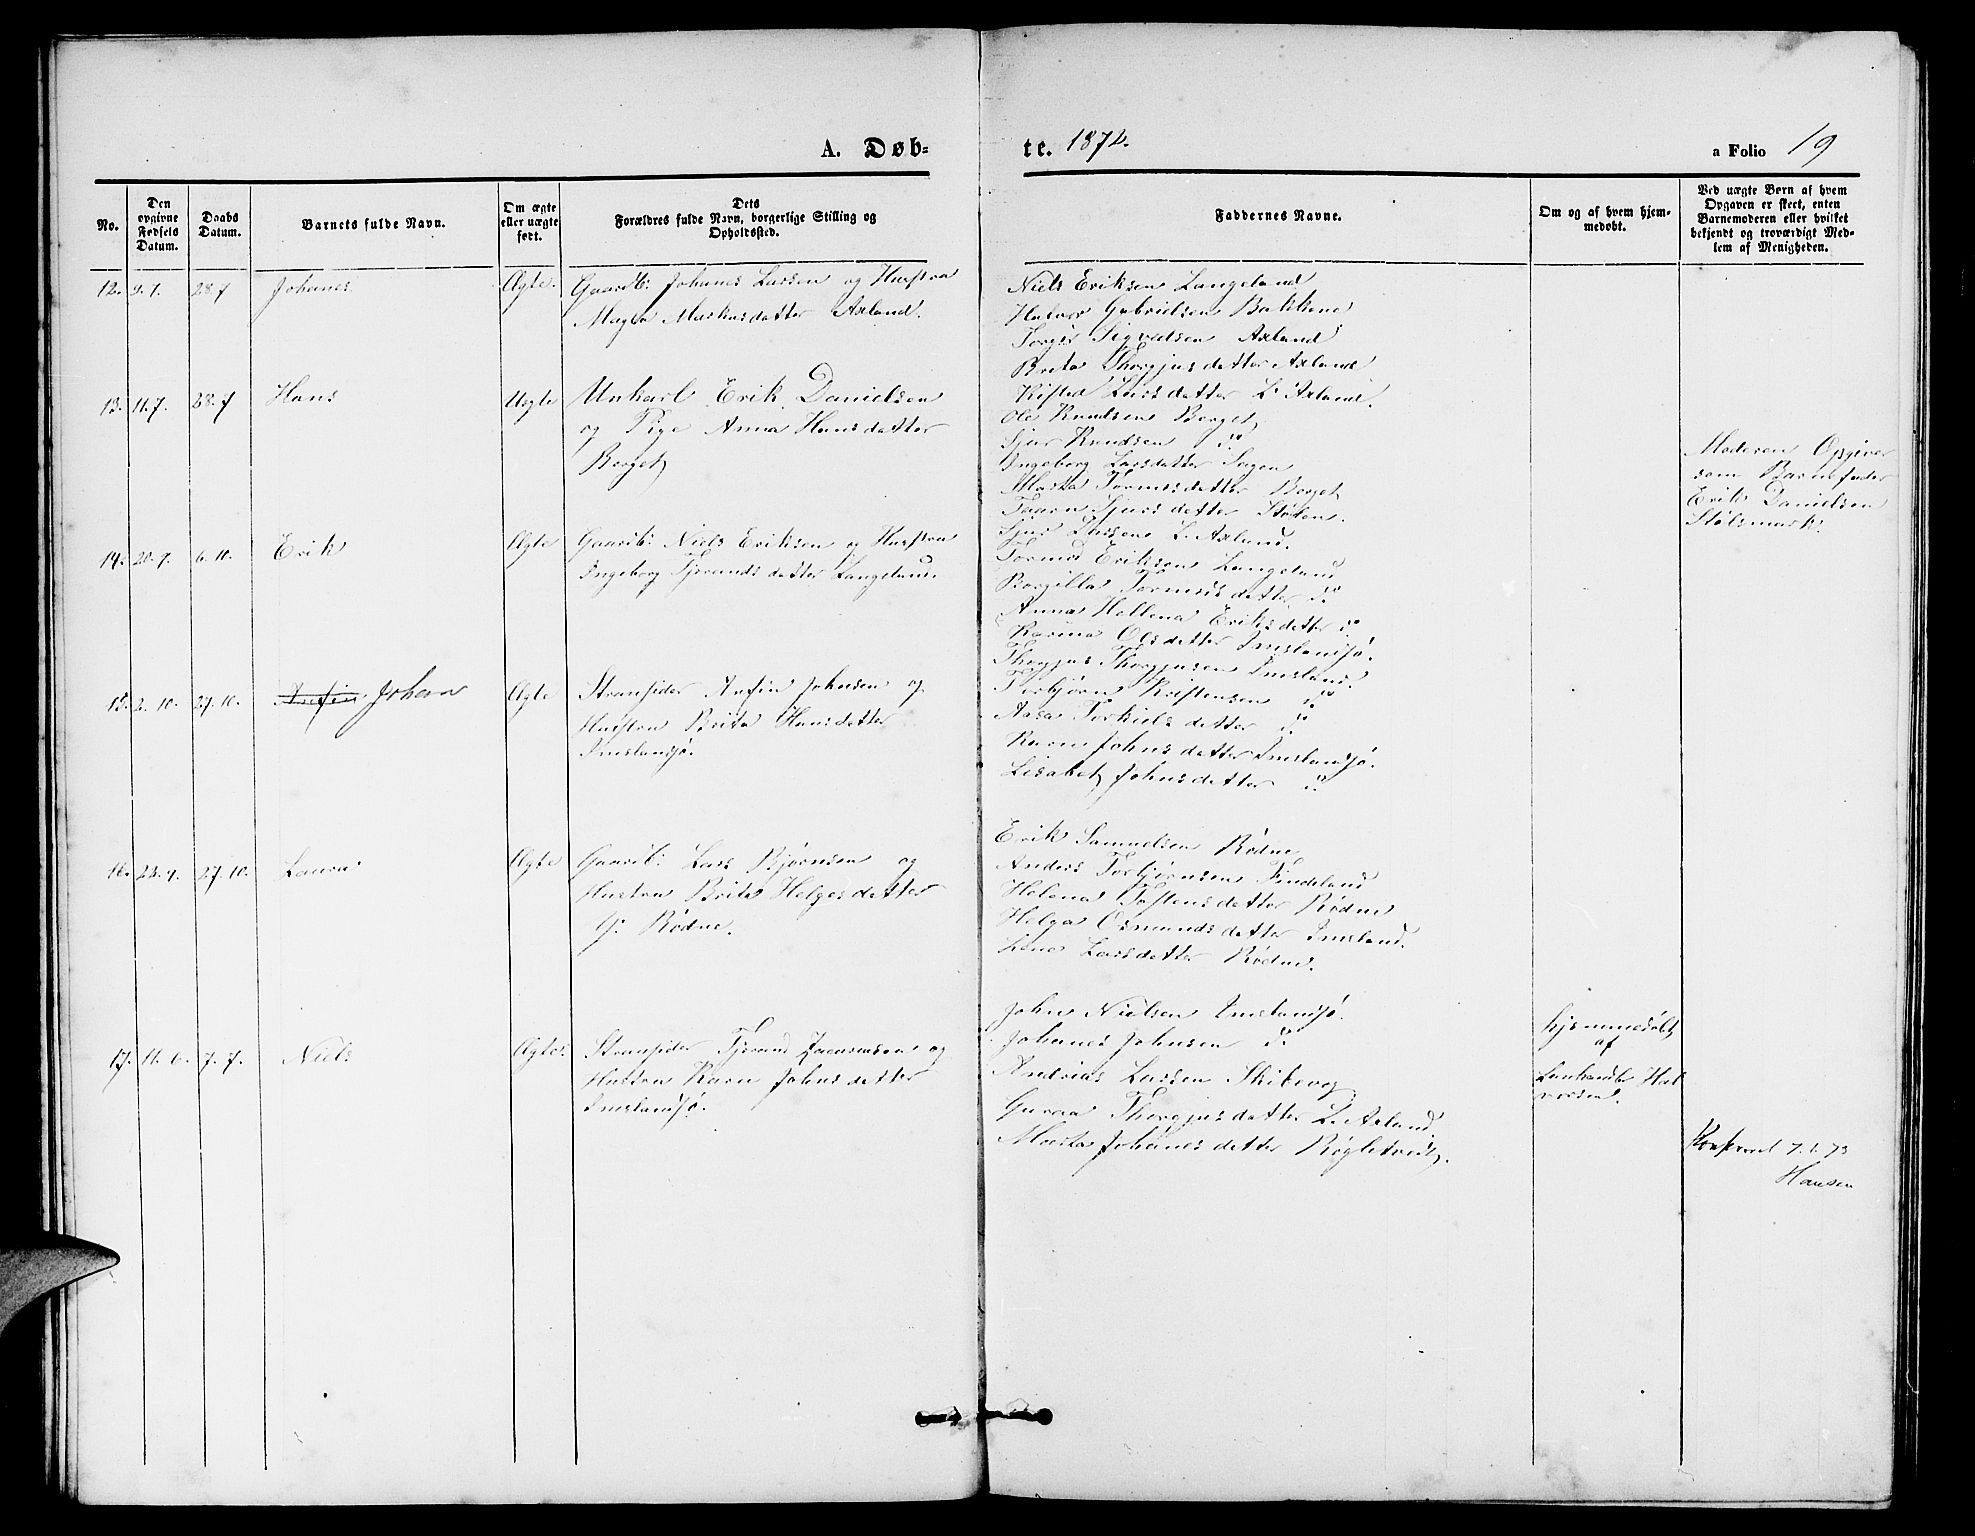 A. Døb-
te. 1872.
a Folio 19
No.
Den opgivne Fødsels Datum.
Daabs Datum.
Barnets fulde Navn.
Om ægte eller uægte født.
Dets Forældres fulde Navn, borgerlige Stilling og Opholdssted.
Faddernes Navne.
Om og af hvem hjemmedøbt.
Ved uægte Børn af hvem Opgaven er skeet, enten Barnemoderen eller hvilket bekjendt og troværdigt Medlem af Menigheden.
12. 9.7. 28.7 Johanes Ægte. Gaardb: Johanes Larsen og Hustru
Magla Markusdatter Axland.
Niels Eriksen Langeland
Halvor Gabrielsen Bakkene
Torger Sigvedsen Axland
Brita Thorgjusdatter Axland
Kisted Larsdatter L. Axland.
13. 11.7. 28.7 Hans Uægte Unkarl Erik Danielsen
og Pige Anna Hansdatter
Berget
Ole Knudsen Berget
Sjur Knudsen do
Ingeborg Larsdatter
Marta Tormodsdatter Berget
Sjursdatter Stølen.
Moderen Opgiver
som Barnefader
Erik Danielsen
Stølsmark.
14. 20.9. 6.10. Erik Ægte Gaardb: Niels Eriksen og Hustru
Ingeborg Tjerandsdatter Langeland.
Sjur Larsen L. Axland.
Tormod Eriksen Langeland
Borgilla Tormodsdatter do
Anna Hellena Eriksdatter do
Karina Olsdatter Imslandsjø.
15. 2.10. 27.10. Anfin Johan Ægte Strandsider Anfin Johnsen og
Hustru Brita Hansdatter
Imslandsjø.
Thorgjus Thorgjusen Imsland.
Torbjørn Kristensen do
Aasa Torkielsdatter do
Karn Johnsdatter Imslandsjø.
Lisabet Johnsdatter do
16. 23.9. 27.10. Laura Ægte Gaardb: Lars Bjørnsen og
Hustru Brita Helgesdatter
Y: Rødne.
Erik Samuelsen Rødne
Anders Torbjørnsen Findeland
Helena Tostensdatter Rødne
Helga Osmundsdatter Imsland.
Lene Larsdatter Rødne.
17. 11.6. 7.7. Niels Ægte. Strandsider Tjerand og
Hustru Karn Johnsdatter
Imslandsjø.
John Nielsen Imslandsjø.
Johanes Johnsen do
Andreas Larsen Skibevog
Guroa Thorgjusdatter L. Axland
Marta Johanesdatter
hjemmedøbt
af
Lenhandler Hal
vorsen.
Konfereret 7.1.73
Hansen